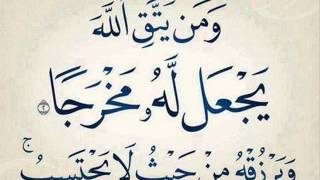 وَمَن يَتَّقِ اللَّهَ
يَجْعَل لَّهُۥ مَخْرَجًا ﴿٢﴾
وَيَرْزُقْهُ مِنْ حَيْثُ لَا يَحْتَسِبُ ۚ